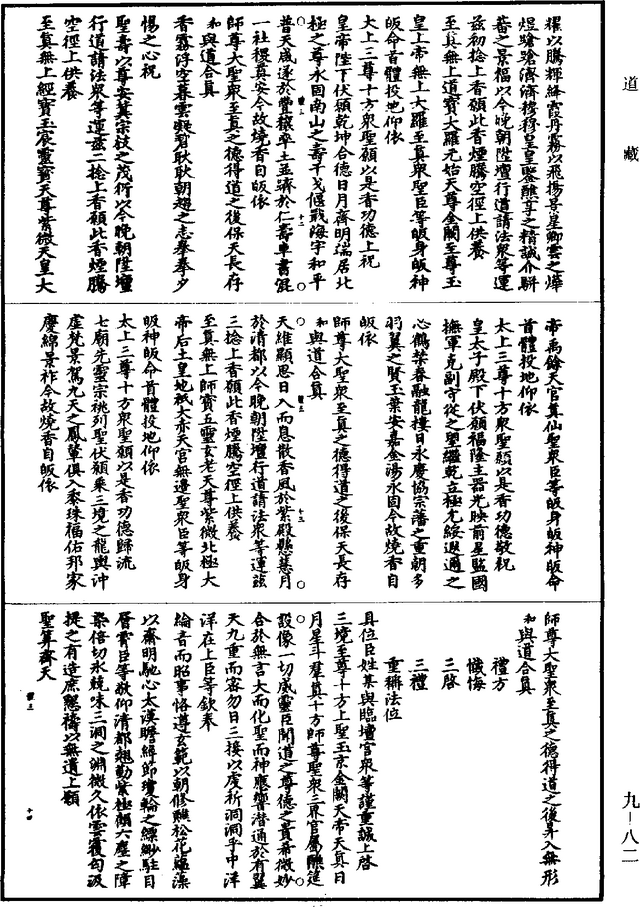 道藏
耀以騰輝絳霞丹霧以飛揚景星卿雲之爗
煜蹌蹌濟濟穆穆皇皇鑒醮享之精誠介駢
蕃之景福以今晚朝陞壇行道請法眾等運
茲初捻上香願此香煙騰空徑上供養
至真無上道寶大羅元始天尊金闕至尊玉
皇上帝無上大羅至真眾聖臣等皈身皈神
皈命首體投地仰依
太上三尊十方眾聖願以是香功德上祝
皇帝陛下伏願乾坤合德日月齊明端居北
極之尊永固南山之壽干戈偃戢海宇和平
普天咸遂於豐穰率土並躋於仁壽車書混
一社稷奠安今故燒香自皈依
師尊大聖眾至真之德得道之後保天長存
和與道合真
香霧浮空暮雲凝宥耿耿朝趨之志拳拳夕
惕之心祝
聖壽以尊安冀宗枝之茂衍以今晚朝陞壇
行道請法眾等運茲二捻上香願此香煙騰
空徑上供養
至真無上經寶玉宸靈寶天尊紫微天皇大
帝禹餘天官真仙聖眾臣等皈身皈神皈命
首體投地仰依
太上三尊十方眾聖願以是香功德敬祝
皇太子殿下伏願福隆主器光映前星監國
撫軍克副守從之望繼乾立極尤綏遐邇之
心鶴禁春融龍樓日永慶協宗藩之重朝多
羽翼之賢玉葉安嘉金湯永固今故燒香自
皈依
師尊大聖眾至真之德得道之後保天長存
和與道合真
天維顯思日入而息散香風於紫殿懸慧月
於清都以今晚朝陞壇行道請法眾等運茲
三捻上香願此香煙騰空徑上供養
至真無上師寶五靈玄老天尊紫微北極大
帝后土皇地祇大赤天官無邊聖眾臣等皈身
皈神皈命首體投地仰依
太上三尊十方眾聖願以是香功德歸流
七廟先靈宗祧列聖伏願乘三境之龍輿沖
虛梵景駕九天之鳳輦俱入黍珠福佑邦家
慶綿景祚今故燒香自皈依
師尊大聖眾至真之德得道之後昇入無形
和與道合真
禮方
懺悔
三啟
三禮
重稱法位
具位臣姓某與臨壇官眾等謹重誠上啟
三境至尊十方上聖玉京金闕天帝天真日
月星斗羣真十方師尊聖眾三界官屬醮筵
設像一切威靈臣聞道之尊德之貴希微妙
合於無言大而化聖而神應響潛通於有翼
天九重而密勿日三接以虔祈洞洞乎中洋
洋在上臣等欽奉
綸音而昭事恪遵玄範以朝修雕松花蘊藻
以齋明馳心太漢瞻絳節瓊輪之縹緲駐目
層霄臣等敬仰清都翹勤紫極願六塵之障
業倍切永兢味三洞之淵微久依雲覆匃汲
提之有造庶懇禱以無遺上願
聖筭齊天
九—八二